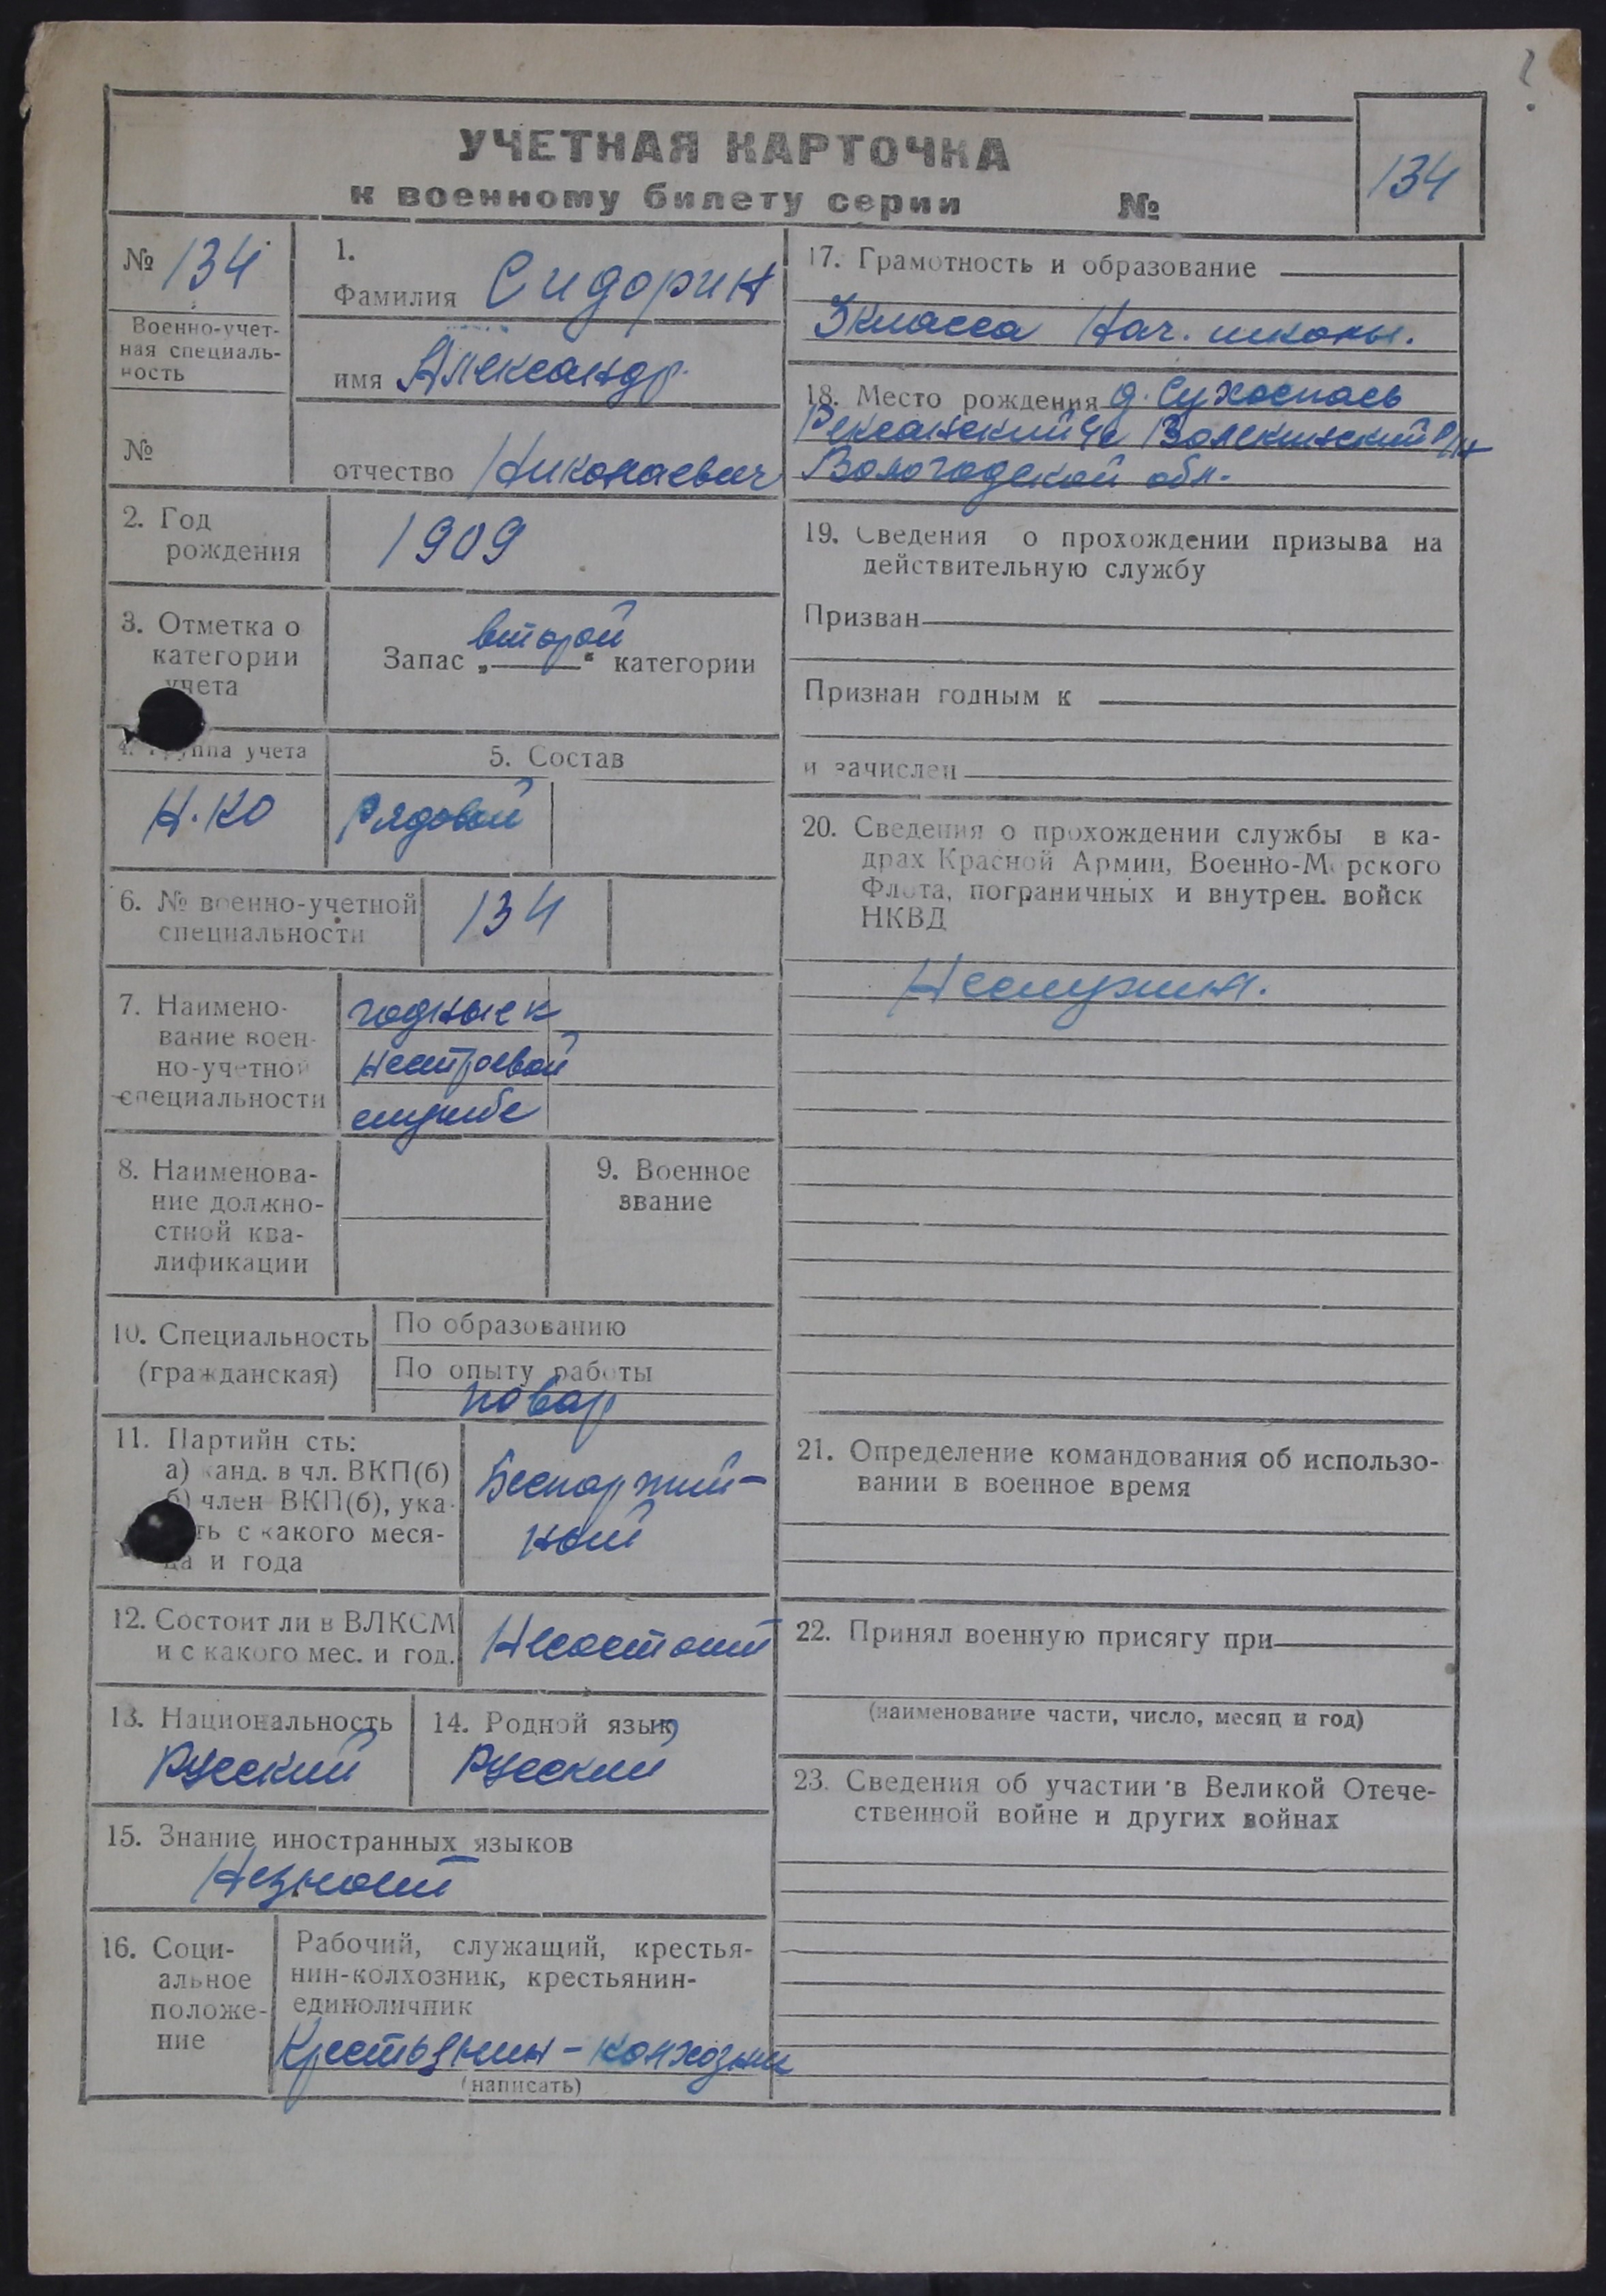 УЧЕТНАЯ КАРТОЧКА
к военному билету серии №
134
№ 134
Военно-учет-
ная специаль-
ность
№
1.
Фамилия Сидорин
имя Александр
отчество Николаевич
2. Год
рождения
1909
3. Отметка о
категории
учета
второй
Запас „ “ категории
4. Группа учета
5. Состав
Н.КО
Рядовой
6. № военно-учетной
специальности
134
7. Наимено-
вание воен-
но-учетной
специальности
годные к
нестроевой
службе
8. Наименова-
ние должно-
стной ква-
лификации
9. Военное
звание
10. Специальность
(гражданская)
По образованию
По опыту работы
повар
11. Партийн сть:
а) канд. в чл. ВКП(б)
б) член ВКП(б), ука-
ть с какого меся-
ца и года
Беспартий-
ный
12. Состоит ли в ВЛКСМ
и с какого мес. и год.
Несостоит
13. Национальность
Русский
14. Родной язык
Русский
15. Знание иностранных языков
Незнает
16. Соци-
альное
положе-
ние
Рабочий, служащий, крестья-
нин-колхозник, крестьянин-
единоличник
Крестьянин-колхозник
(написать)
17. Грамотность и образование
3 класса Нач. школы.
18. Место рождения д.
с/с р/н
Вологодской обл.
19. Сведения о прохождении призыва на
действительную службу
Призван
Признан годным к
и зачислен
20. Сведения о прохождении службы в ка-
драх Красной Армии, Военно-Морского
Флота, пограничных и внутрен. войск
НКВД
Неслужил.
21. Определение командования об использо-
вании в военное время
22. Принял военную присягу при
(наименование части, число, месяц и год)
23. Сведения об участии в Великой Отече-
ственной войне и других войнах